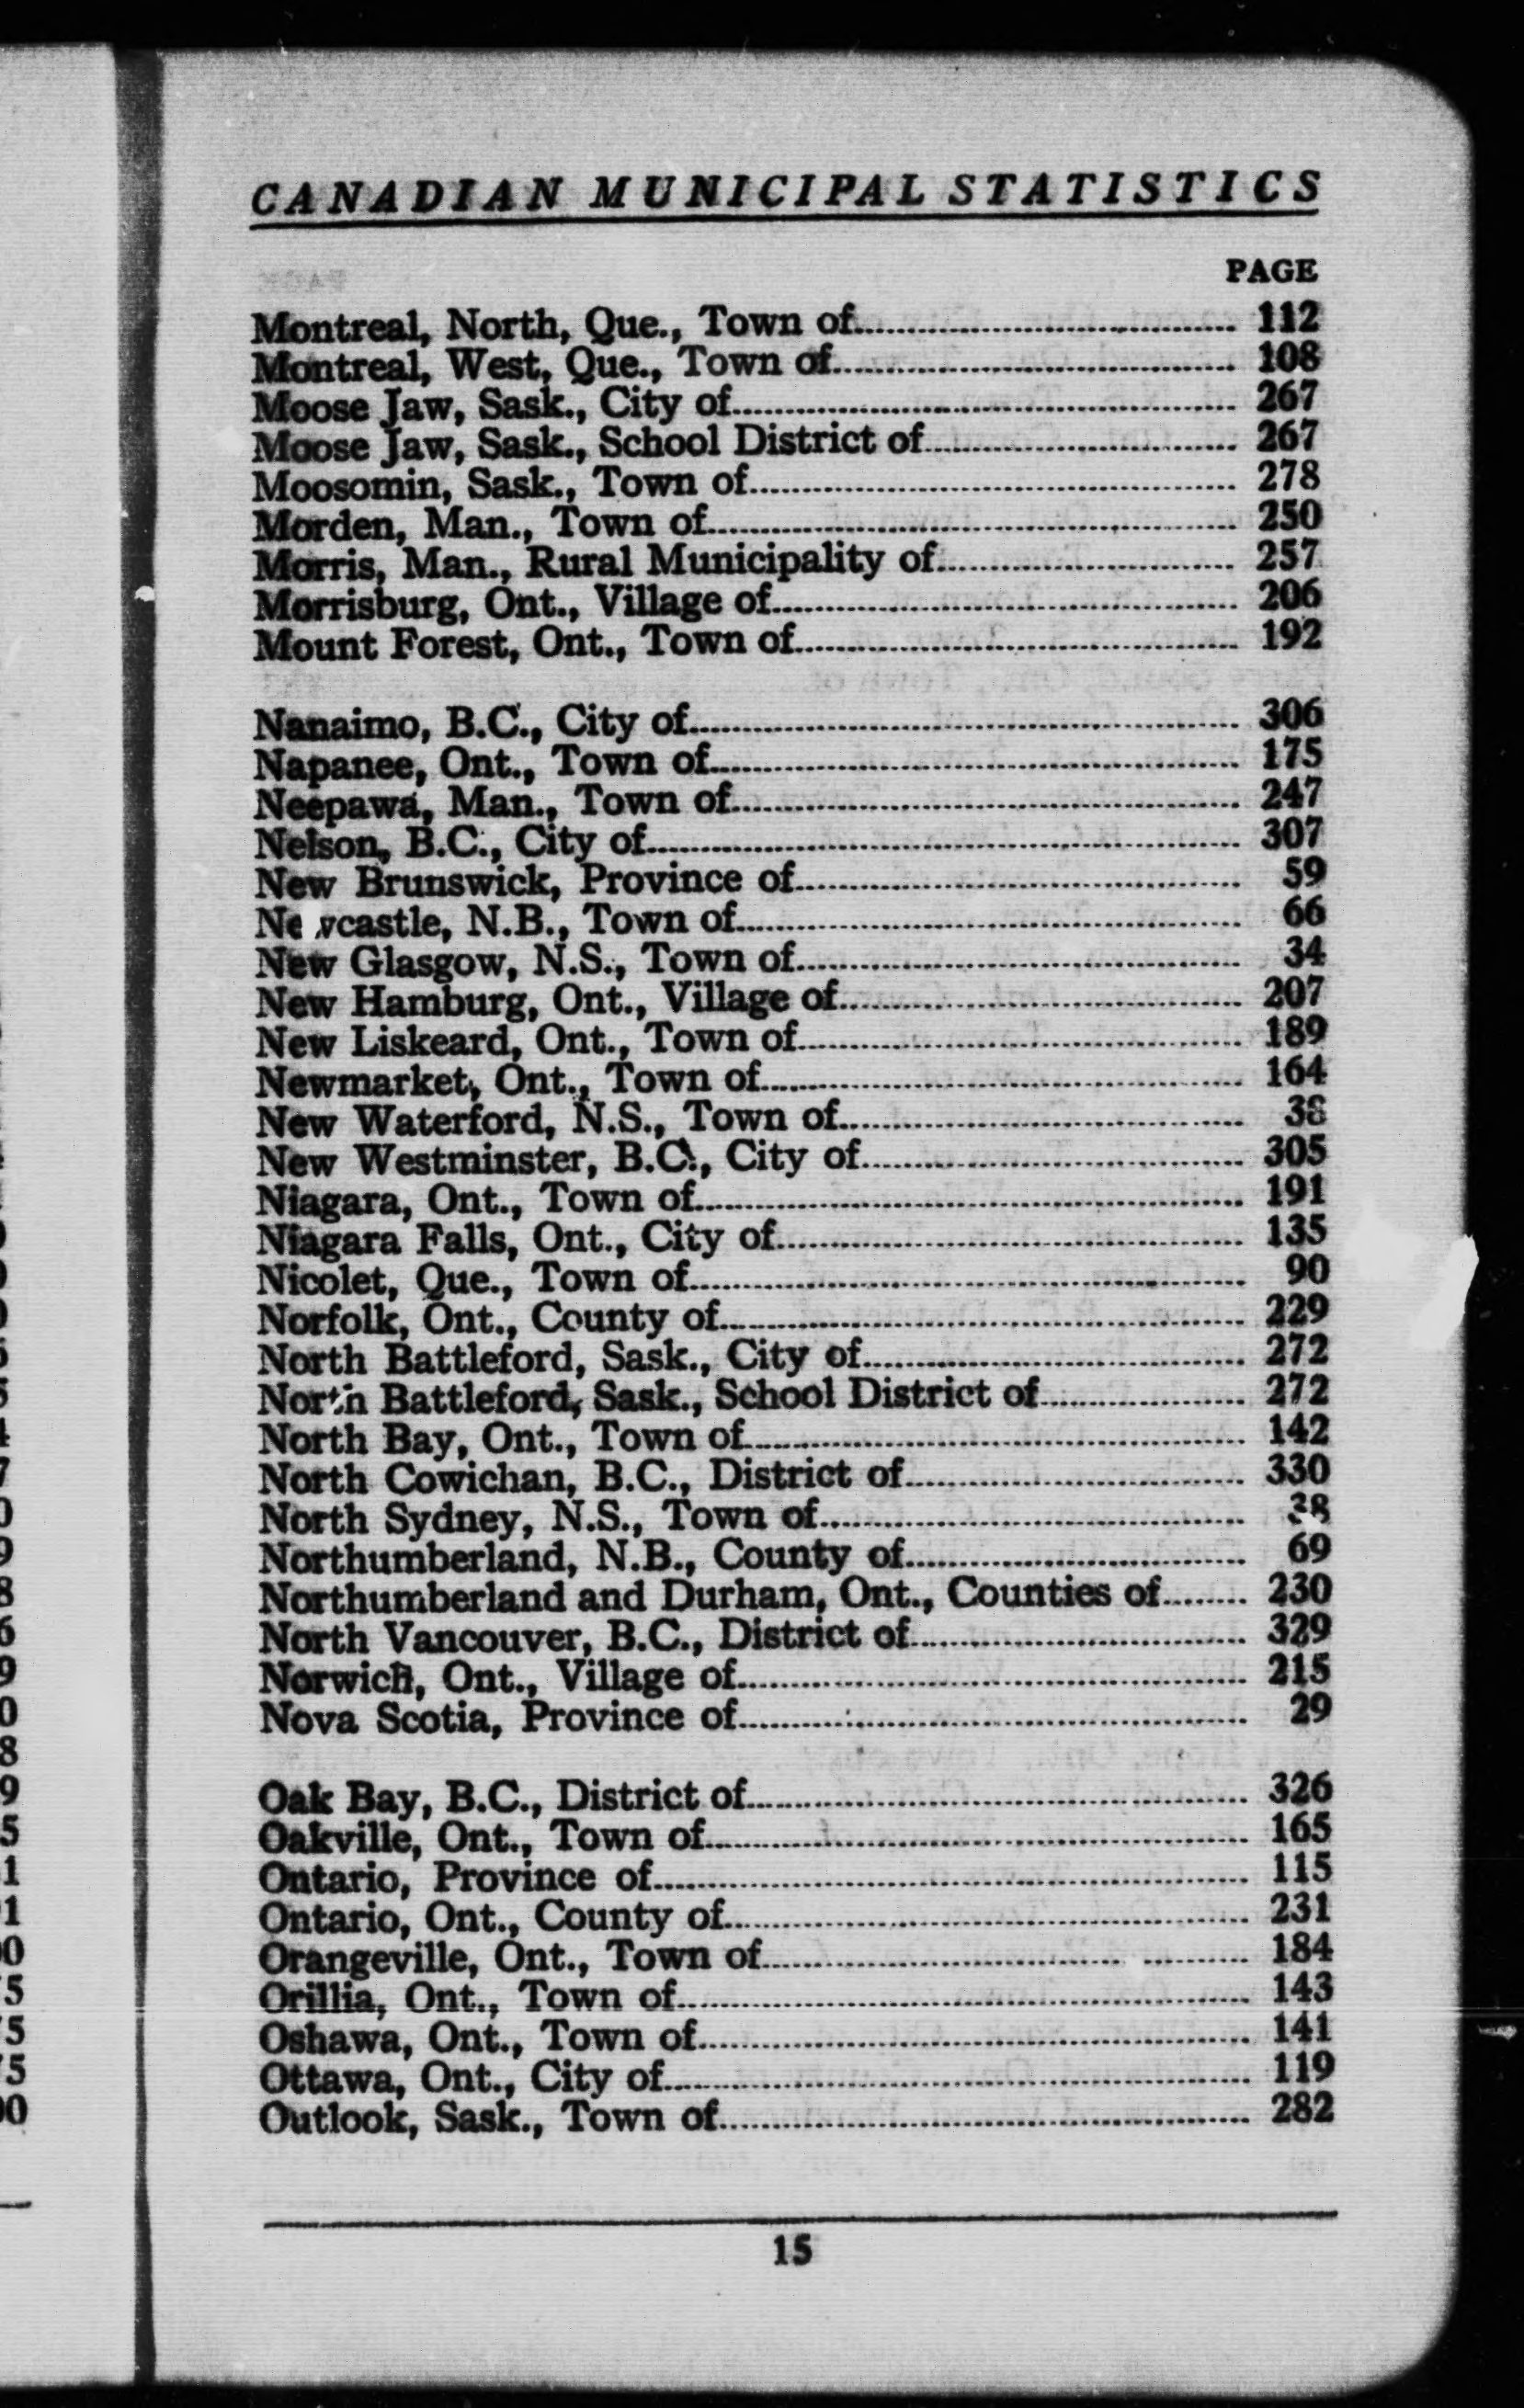 CANADIAN MUNICIPAL STATISTICS
PAGE
Montreal, North, Que., Town of 112
Montreal, West, Que., Town of 108
Moose Jaw, Sask., City of 267
Moose Jaw, Sask., School District of 267
Moosomin, Sask., Town of 278
Morden, Man., Town of 250
Morris, Man., Rural Municipality of 257
Morrisburg, Ont., Village of 206
Mount Forest, Ont., Town of 192
Nanaimo, B.C., City of 306
Napanee, Ont., Town of 175
Neepawa, Man., Town of 247
Nelson, B.C., City of 307
New Brunswick, Province of 59
Newcastle, N.B., Town of 66
New Glasgow, N.S., Town of 34
New Hamburg, Ont., Village of 207
New Liskeard, Ont., Town of 189
Newmarket, Ont., Town of 164
New Waterford, N.S., Town of 38
New Westminster, B.C., City of 305
Niagara, Ont., Town of 191
Niagara Falls, Ont., City of 135
Nicolet, Que., Town of 90
Norfolk, Ont., County of 229
North Battleford, Sask., City of 272
North Battleford, Sask., School District of 272
North Bay, Ont., Town of 142
North Cowichan, B.C., District of 330
North Sydney, N.S., Town of 38
Northumberland, N.B., County of 69
Northumberland and Durham, Ont., Counties of 230
North Vancouver, B.C., District of 329
Norwich, Ont., Village of 215
Nova Scotia, Province of 29
Oak Bay, B.C., District of 326
Oakville, Ont., Town of 165
Ontario, Province of 115
Ontario, Ont., County of 231
Orangeville, Ont., Town of 184
Orillia, Ont., Town of 143
Oshawa, Ont., Town of 141
Ottawa, Ont., City of 119
Outlook, Sask., Town of 282
15